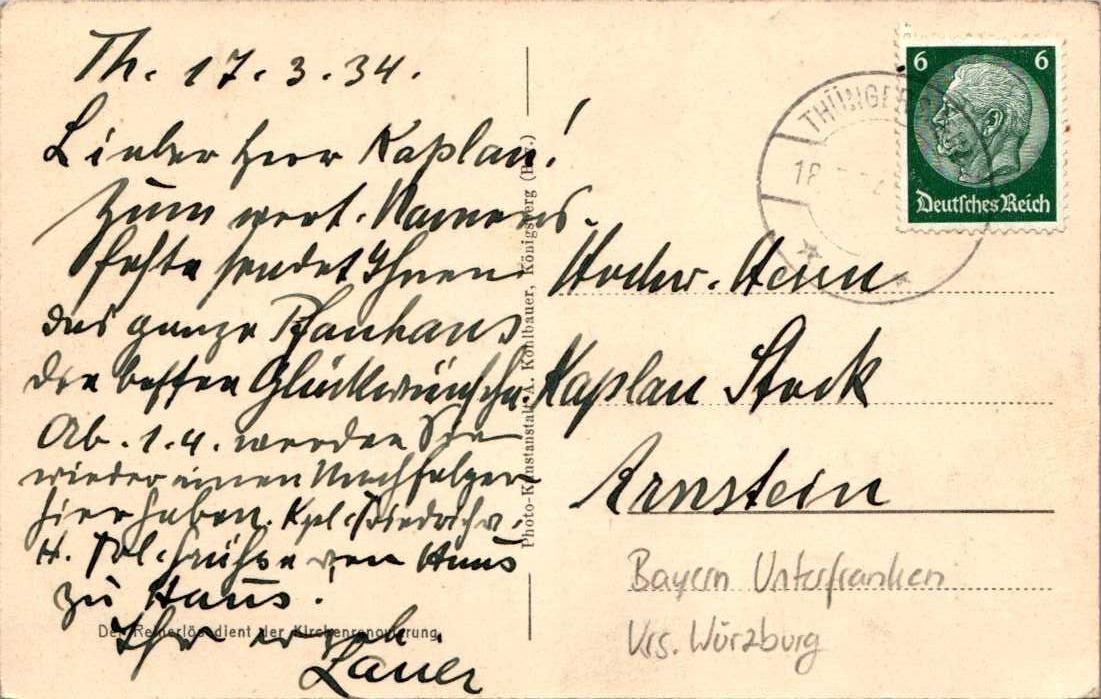 Th. 17.3.34.
Lieber Herr Kaplan!
Zum wert. Namens-
feste sendet Ihnen
das ganze Pfarrhaus
die besten Glückwünsche.
Ab. 1.4. werden Sie
wieder einen Nachfolger
hier haben. Kpl. Friedrich
H. von Haus
zu Haus.
Ihr ergeb.
Lauer
Der Reinerlös dient der Kirchenrenovierung.
Photo-Kunstanstalt A. Kohlbauer, Königsberg (Bay.)
THÜNGE
18
6 6
Deutsches Reich
Hochw. Herrn
Kaplan Stock
Arnstein
Bayern Unterfranken
Krs. Würzburg